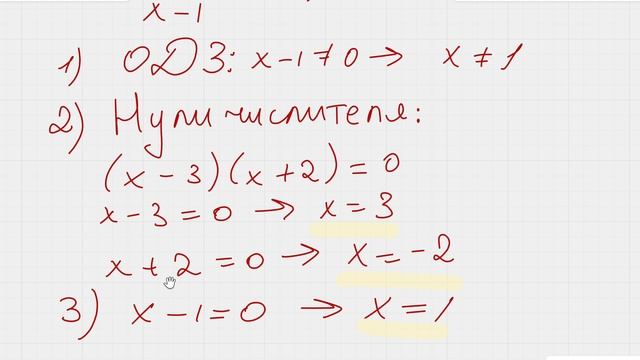 x - 1
1) ОДЗ: x - 1 ≠ 0 → x ≠ 1
2) Нули числителя:
(x - 3)(x + 2) = 0
x - 3 = 0 → x = 3
x + 2 = 0 → x = -2
3) x - 1 = 0 → x = 1